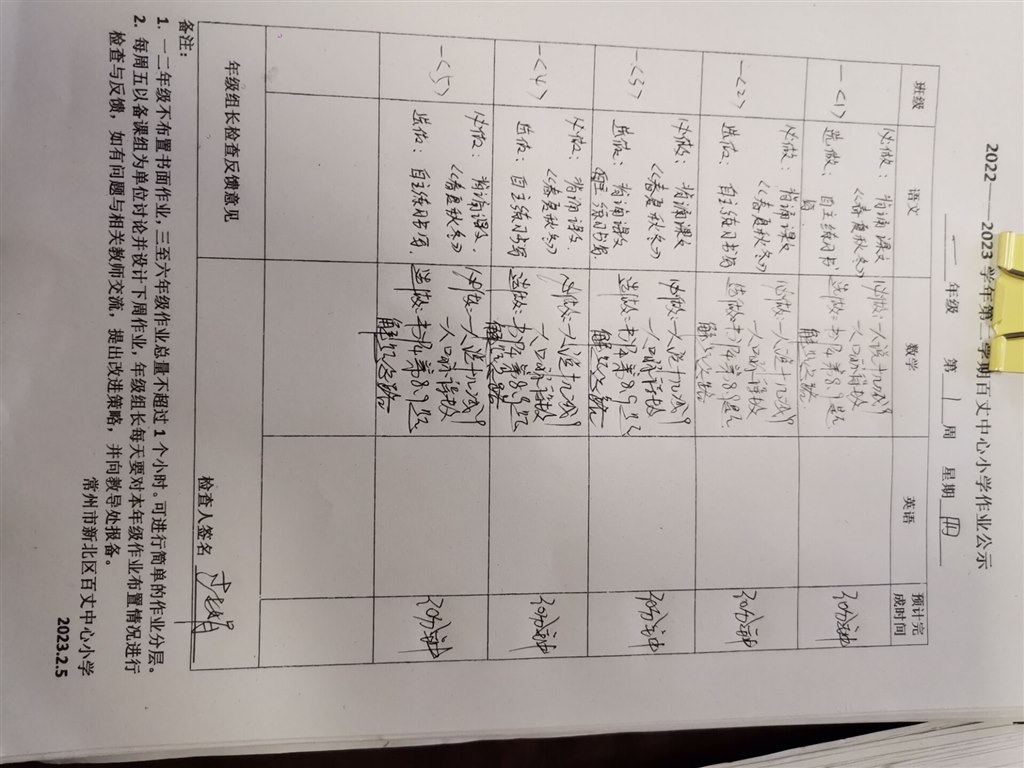 2022——2023学年第二学期百丈中心小学作业公示
一 年级 第 1 周 星期 四
班级 语文 数学 英语 预计完成时间
一<1>
必做：背诵课文
《春夏秋冬》
选做：自主练习书写
必做：一人说十几减9
一人口算得数
选做：书写第8、9题
20分钟
一<2>
必做：背诵课文
《春夏秋冬》
选做：自主练习书写
必做：一人说十几减9
一人口算得数
选做：书写第8、9题
20分钟
一<3>
必做：背诵课文
《春夏秋冬》
选做：背诵课文
自主练习书写
必做：一人说十几减9
一人口算得数
选做：书写第8、9题
20分钟
一<4>
必做：背诵课文
《春夏秋冬》
选做：自主练习书写
必做：一人说十几减9
一人口算得数
选做：书写第8、9题
20分钟
一<5>
必做：背诵课文
《春夏秋冬》
选做：自主练习书写
必做：一人说十几减9
一人口算得数
选做：书写第8、9题
20分钟
年级组长检查反馈意见
检查人签名
备注：
1. 一二年级不布置书面作业，三至六年级作业总量不超过1个小时。可进行简单的作业分层。
2. 每周五以备课组为单位讨论并设计下周作业，年级组长每天要对本年级作业布置情况进行
检查与反馈，如有问题与相关教师交流，提出改进策略，并向教导处报备。
常州市新北区百丈中心小学
2023.2.5